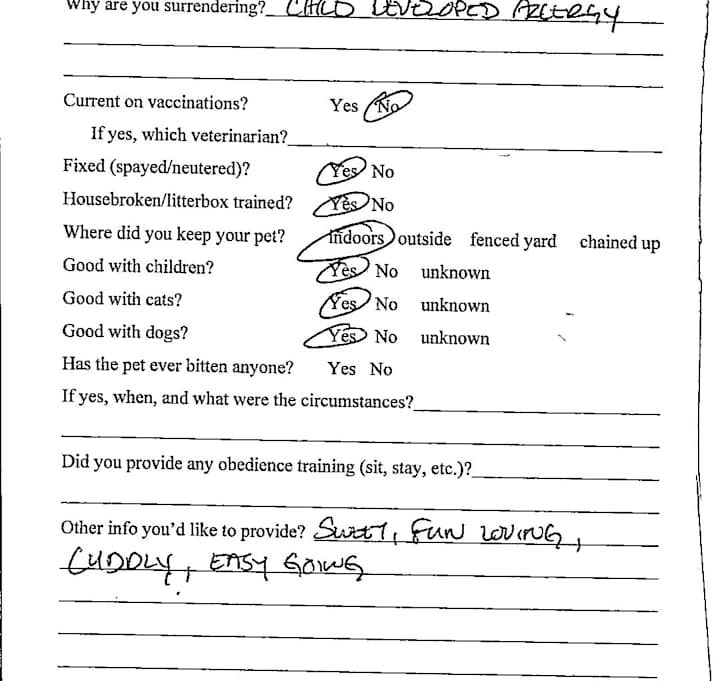 Why are you surrendering? CHILD DEVELOPED ALLERGY
Current on vaccinations? Yes No
If yes, which veterinarian?
Fixed (spayed/neutered)? Yes No
Housebroken/litterbox trained? Yes No
Where did you keep your pet? indoors outside fenced yard chained up
Good with children? Yes No unknown
Good with cats? Yes No unknown
Good with dogs? Yes No unknown
Has the pet ever bitten anyone? Yes No
If yes, when, and what were the circumstances?
Did you provide any obedience training (sit, stay, etc.)?
Other info you'd like to provide? Sweet, FUN LOVING,
CUDDLY, EASY GOING